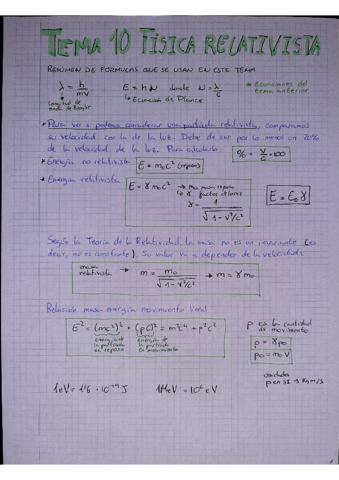 TEMA 10 FÍSICA RELATIVISTA
RESUMEN DE FORMULAS QUE SE USAN EN ESTE TEMA
λ = h/mv E = hν donde ν = λ/c * Ecuaciones del tema anterior
Longitud de onda de Broglie ↳ Ecuación de Planck
• Para ver si podemos considerar una partícula relativista, comparamos
su velocidad con la de la luz. Debe de ser por lo menos un 20%
de la velocidad de la luz. Para calcularlo: % = v/c · 100
• Energía no relativista E = m₀c² (reposo)
• Energía relativista E = γm₀c² → m₀ masa reposo
↳ γ factor
γ = 1/√(1 - v²/c²)
E = E₀γ
Según la Teoría de la Relatividad la masa no es un invariante (es
decir, no es constante). Su valor va a depender de la velocidad:
masa relativista → m = m₀/√(1 - v²/c²) → m = γm₀
Relación masa energía movimiento lineal
E² = (mc²)² + (pc)² = m²c⁴ + p²c²
energía de la partícula en reposo energía de la partícula en movimiento
p es la cantidad de movimiento
p = γp₀
p₀ = m₀v
unidades
p en SI → kg m/s
1eV = 1'6 · 10⁻¹⁹ J 1MeV = 10⁶ eV